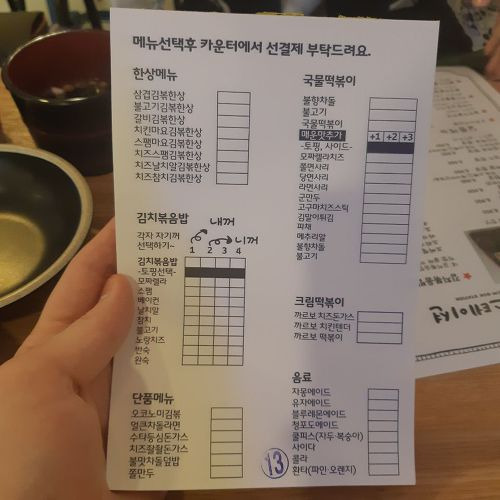 메뉴선택후 카운터에서 선결제 부탁드려요.
한상메뉴
삼겹김볶한상
불고기김볶한상
갈비김볶한상
치킨마요김볶한상
스팸마요김볶한상
치즈스팸김볶한상
치즈날치알김볶한상
치즈참치김볶한상
김치볶음밥
내꺼
각자 자기꺼
선택하기~
니꺼
1 2 3 4
김치볶음밥
-토핑선택-
모짜렐라
스팸
베이컨
날치알
참치
불고기
노랑치즈
반숙
완숙
단품메뉴
오코노미김볶
얼큰차돌라면
수타등심돈가스
치즈촬촬돈가스
불맛차돌덮밥
쫄만두
국물떡볶이
불향차돌
불고기
국물떡볶이
매운맛추가 +1 +2 +3
-토핑, 사이드-
모짜렐라치즈
쫄면사리
당면사리
라면사리
군만두
고구마치즈스틱
김말이튀김
파채
메추리알
불향차돌
불고기
크림떡볶이
까르보 치즈돈가스
까르보 치킨텐더
까르보 떡볶이
음료
자몽에이드
유자에이드
블루레몬에이드
청포도에이드
쿨피스(자두·복숭아)
사이다
콜라
환타(파인·오렌지)
13